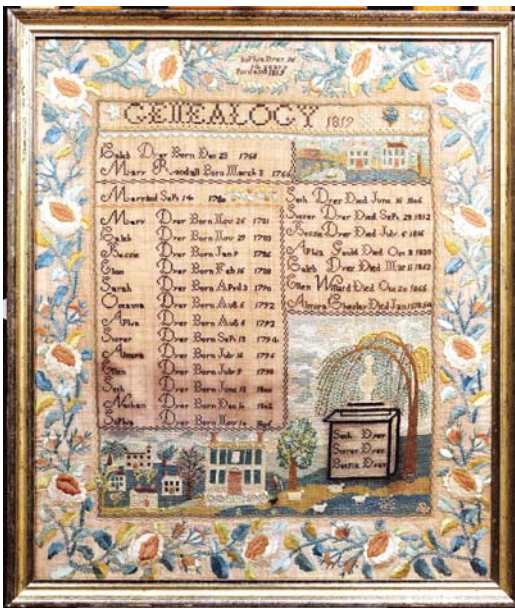 Sophia Dyer Æ
14 years
Portland 1819
GENEALOGY 1819
Caleb Dyer Born Dec 23 1768
Mary Randall Born March 2 1760
Married Sept 14
Mary Dyer Born Nov 26 1781
Caleb Dyer Born Nov 29 1783
Dyer Born Jan 9 1786
Dyer Born Feb 16 1788
Sarah Dyer Born April 3 1790
Dyer Born Aug 6 1792
Dyer Born Aug 6 1792
Dyer Born Sept 12 1794
Almira Dyer Born July 16 1796
Ellen Dyer Born July 9 1798
Seth Dyer Born June 12 1800
Nathan Dyer Born Dec 14 1802
Sophia Dyer Born Nov 14
Seth Dyer Died June 16 1806
Dyer Died Sept 29 1812
Dyer Died July 6 1816
Gould Died Oct 3 1839
Caleb Dyer Died Mar 11 1852
Ellen Willard Died Oct 20 1868
Almira Died Jan
Seth Dyer
Dyer
Dyer